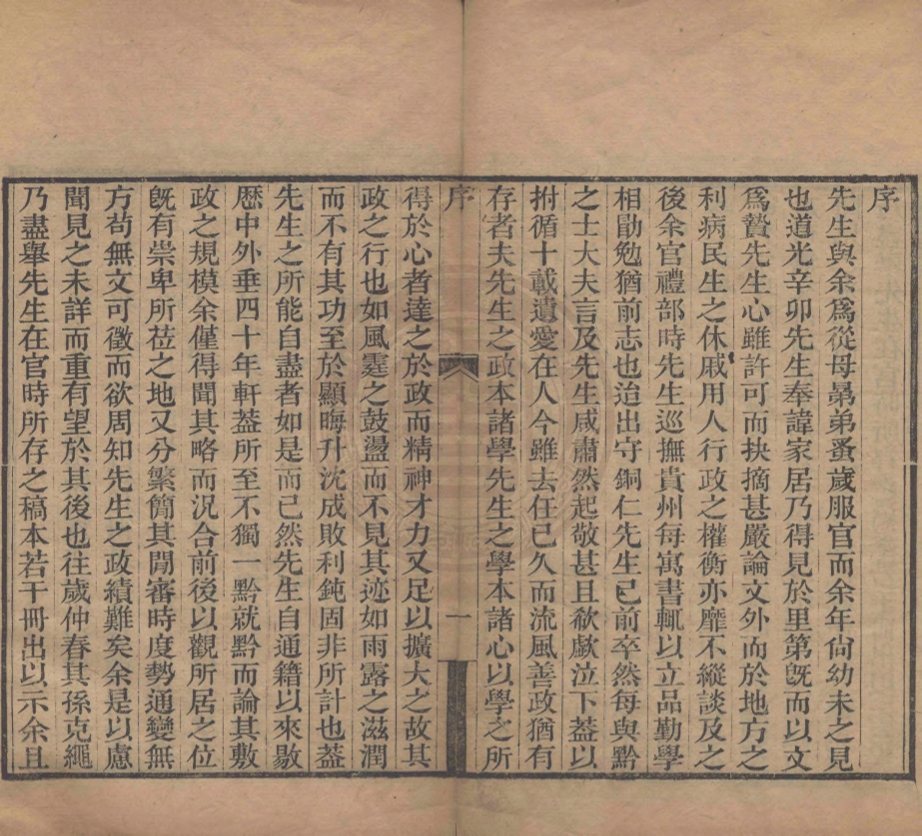 序
先生與余爲從母晜弟蚤歲服官而余年尙幼未之見
也道光辛卯先生奉諱家居乃得見於里第旣而以文
爲贄先生心雖許可而抉摘甚嚴論文外而於地方之
利病民生之休戚用人行政之權衡亦靡不縱談及之
後余官禮部時先生巡撫貴州每寓書輒以立品勤學
相勖勉猶前志也迨出守銅仁先生已前卒然每與黔
之士大夫言及先生咸肅然起敬甚且欷歔泣下蓋以
拊循十載遺愛在人今雖去任已久而流風善政猶有
存者夫先生之政本諸學先生之學本諸心以學之所
序
一
得於心者達之於政而精神才力又足以擴大之故其
政之行也如風霆之鼓盪而不見其迹如雨露之滋潤
而不有其功至於顯晦升沈成敗利鈍固非所計也蓋
先生之所能自盡者如是而已然先生自通籍以來敭
歴中外垂四十年軒蓋所至不獨一黔就黔而論其敷
政之規模余僅得聞其略而況合前後以觀所居之位
旣有崇卑所莅之地又分繁簡其閒審時度勢通變無
方苟無文可徵而欲周知先生之政績難矣余是以慮
聞見之未詳而重有望於其後也往歲仲春其孫克繩
乃盡舉先生在官時所存之稿本若干冊出以示余且